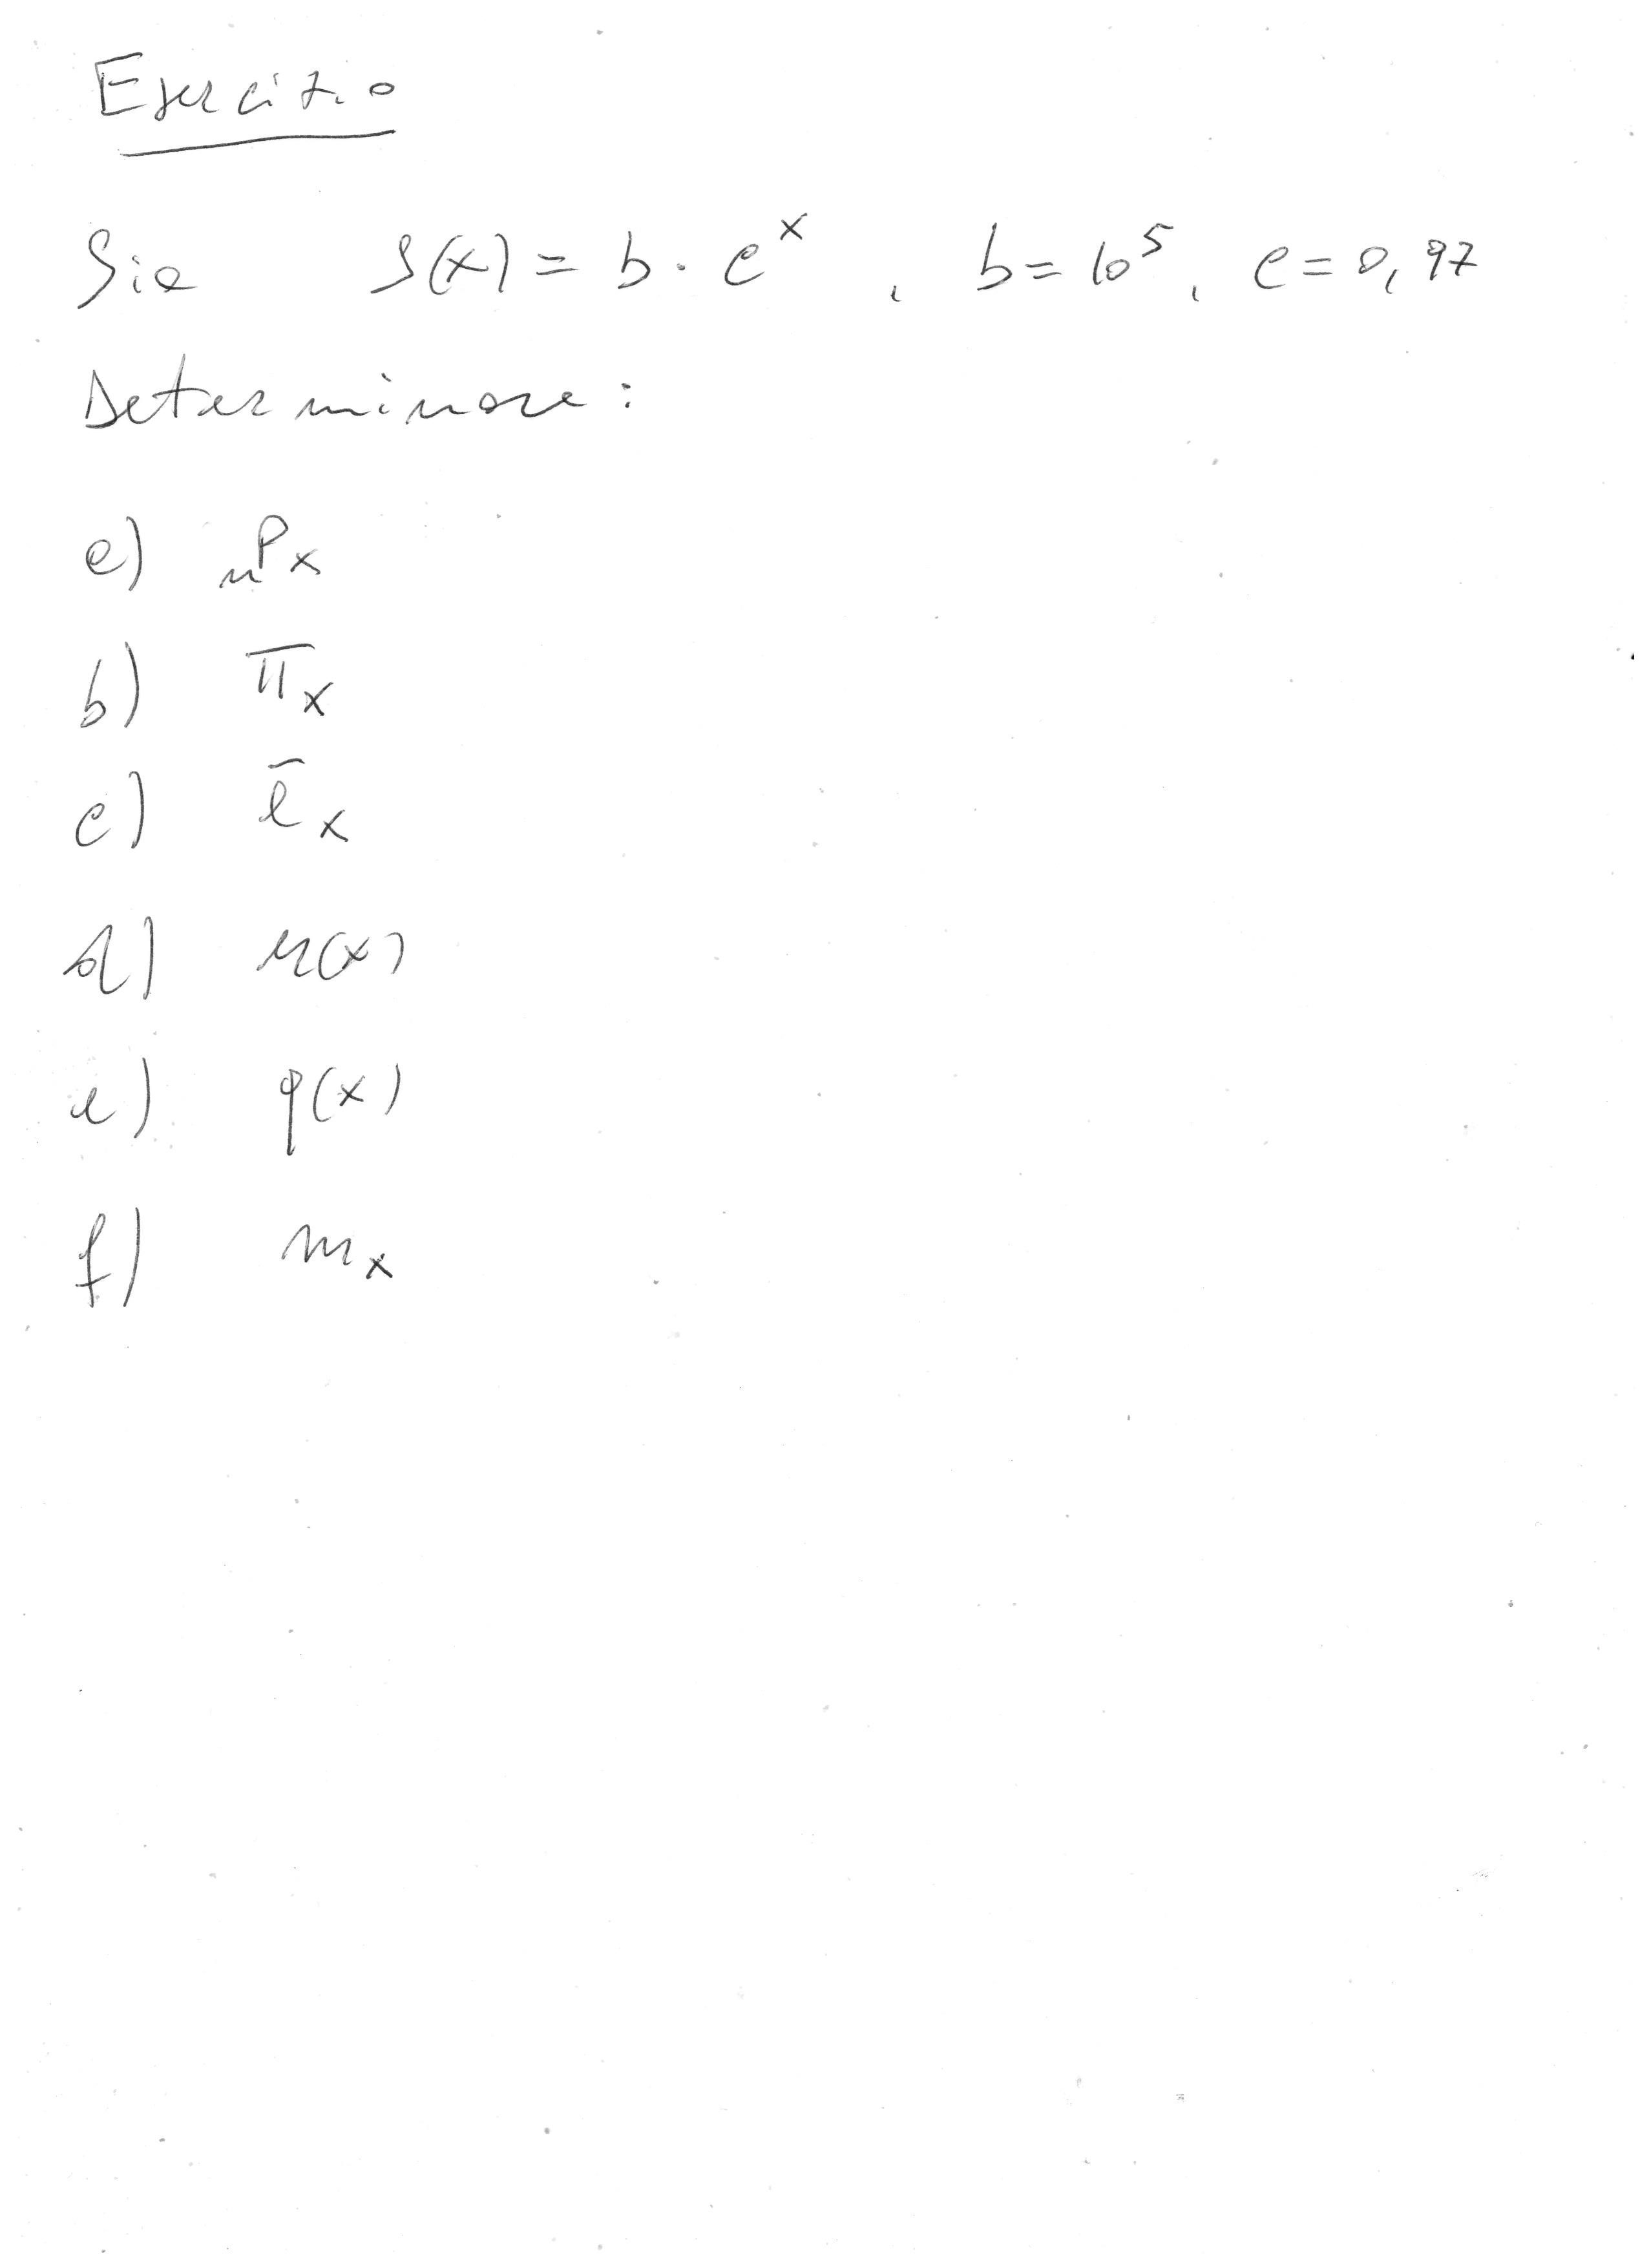 Esercizio
Sia S(x) = b · c^x , b = 10^5 , c = 0,97
Determinare:
a) ₙPₓ
b) πₓ
c) ēₓ
d) μ(x)
e) q(x)
f) mₓ